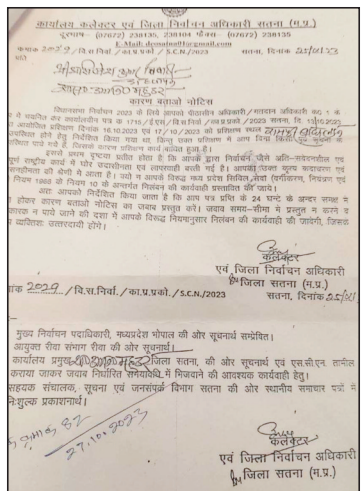 कार्यालय कलेक्टर एवं जिला निर्वाचन अधिकारी सतना (म.प्र.)
दूरभाष- (07672) 238135, 238104 फैक्स- (07672) 238135
E-Mail:
क्रमांक 2029 /वि.स.निर्वा. /का.प्र.प्रको. /S.C.N./2023 सतना, दिनांक 25/10/23
प्रति
श्री
कारण बताओ नोटिस
विधानसभा निर्वाचन 2023 के लिये आपको पीठासीन अधिकारी/मतदान अधिकारी क्र0 1 के
में कार्यालयीन पत्र क्र 1716 /का.प्र.प्रको. /2023 सतना, दि. 13.10.2023
आयोजित प्रशिक्षण दिनांक 16.10.2023 एवं 17/10/2023 को प्रशिक्षण स्थल
उपस्थित होने हेतु निर्देशित किया गया था, किन्तु उक्त प्रशिक्षण में आप बिना किसी पूर्व सूचना के
पाये गये है, जिसके कारण प्रशिक्षण कार्य बाधित हुआ है।
इससे प्रथम दृष्टया प्रतीत होता है कि आपके द्वारा निर्वाचन जैसे अति-संवेदनशील एवं
राष्ट्रीय कार्य में घोर उदासीनता एवं लापरवाही बरती गई है। आपका उक्त कृत्य कदाचरण एवं
की श्रेणी में आता है। क्यो न आपके विरुद्ध मध्य प्रदेश सिविल सेवा (वर्गीकरण, नियंत्रण एवं
नियम 1966 के नियम 10 के अन्तर्गत निलंबन की कार्यवाही प्रस्तावित की जाये।
अतः आपको निर्देशित किया जाता है कि आप पत्र प्राप्ति के 24 घन्टे के अन्दर समक्ष में
होकर कारण बताओ नोटिस का जवाब प्रस्तुत करें। जवाब समय-सीमा में प्रस्तुत न करने व
कारक न पाये जाने की दशा में आपके विरुद्ध नियमानुसार निलंबन की कार्यवाही की जावेगी, जिसके
व्यक्तिशः उत्तरदायी होंगे।
कलेक्टर
एवं जिला निर्वाचन अधिकारी
जिला सतना (म.प्र.)
2029 /वि.स.निर्वा. /का.प्र.प्रको. /S.C.N./2023 सतना, दिनांक 25/10/
मुख्य निर्वाचन पदाधिकारी, मध्यप्रदेश भोपाल की ओर सूचनार्थ सम्प्रेषित।
आयुक्त रीवा संभाग रीवा की ओर सूचनार्थ।
कार्यालय प्रमुख जिला सतना, की ओर सूचनार्थ एवं एस.सी.एन. तामील
कराया जाकर जवाब निर्धारित समयावधि में भिजवाने की आवश्यक कार्यवाही हेतु।
सहायक संचालक, सूचना एवं जनसंपर्क विभाग सतना की ओर स्थानीय समाचार पत्रों में
निःशुल्क प्रकाशनार्थ।
क्रमांक 82
27.10.2023
कलेक्टर
एवं जिला निर्वाचन अधिकारी
जिला सतना (म.प्र.)